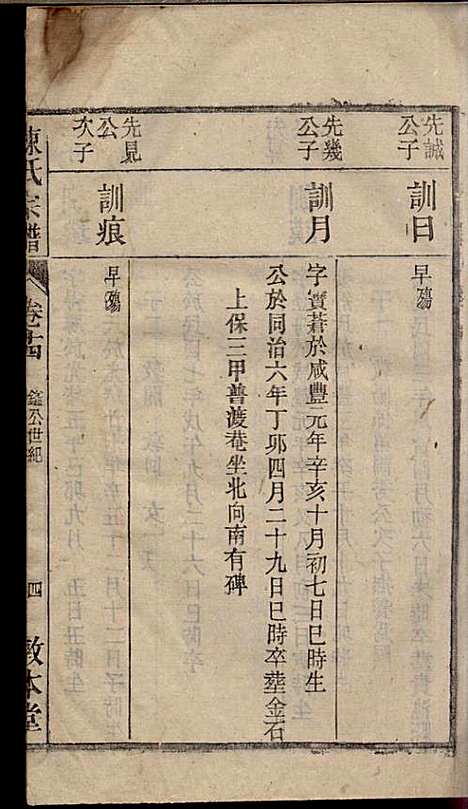 先誠
公子
訓日
早殤
先幾
公子
訓月
字寶蒼於咸豐元年辛亥十月初七日巳時生
公於同治六年丁卯四月二十九日巳時卒塟金石
上保三甲普渡菴坐北向南有碑
先見
公
次子
訓痕
早殤
陳氏宗譜
卷十四
鎰公世紀
四
敦本堂